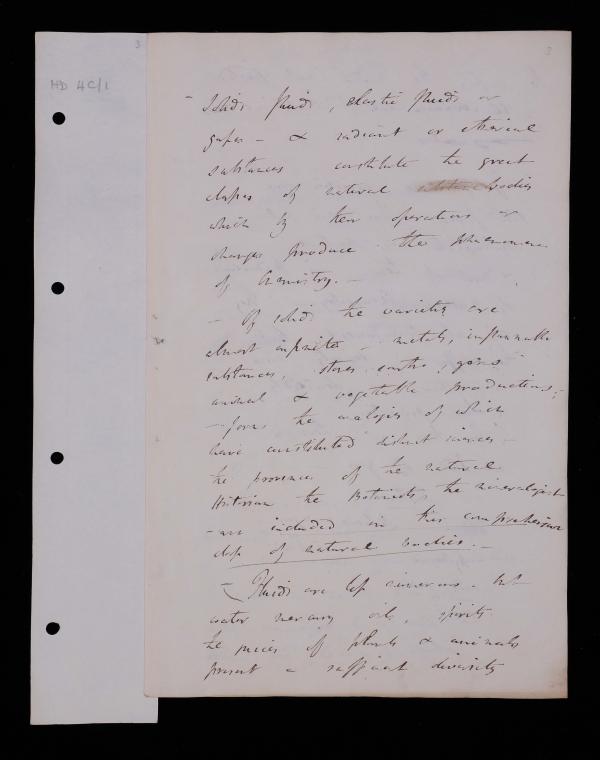 3
3
HD 4C/1
- Solids fluids, elastic fluids or
gases - & radiant or etherial
substances constitute the great
classes of natural bodies
which by their operations or
changes produce the phænomena
of Chemistry. -
- Of solids the varieties are
almost infinite - metals, inflammable
substances, stones earths,
animal & vegetable productions;
- the analogies of which
have constituted distinct
the provinces of the natural
Historian the Botanist, the mineralogist
- are included in this comprehensive
class of natural bodies. -
- Fluids are less numerous - but
water mercury oils, spirits
the juices of plants & animals
present a sufficient diversity